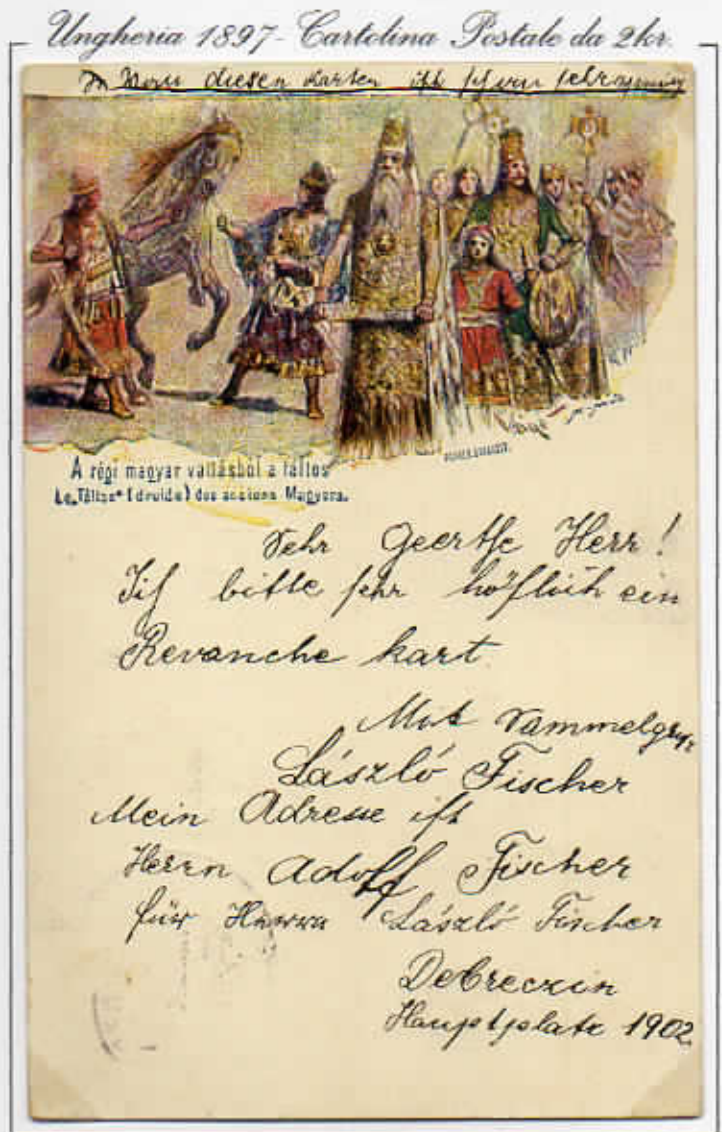 Ungheria 1897-Cartolina Postale da 2kr.
Von diesen Karten ist schon sehr wenig
A régi magyar vallásból a táltos
Le „Táltos“ (druide) des anciens Magyars.
Sehr Geerthe Herr!
Ich bitte sehr höflich ein
Revanche kart.
Mit Sammelgruß
László Fischer
Mein Adresse ist
Herrn Adolf Fischer
für Herrn László Fischer
Debreczin
Hauptplatz 1902